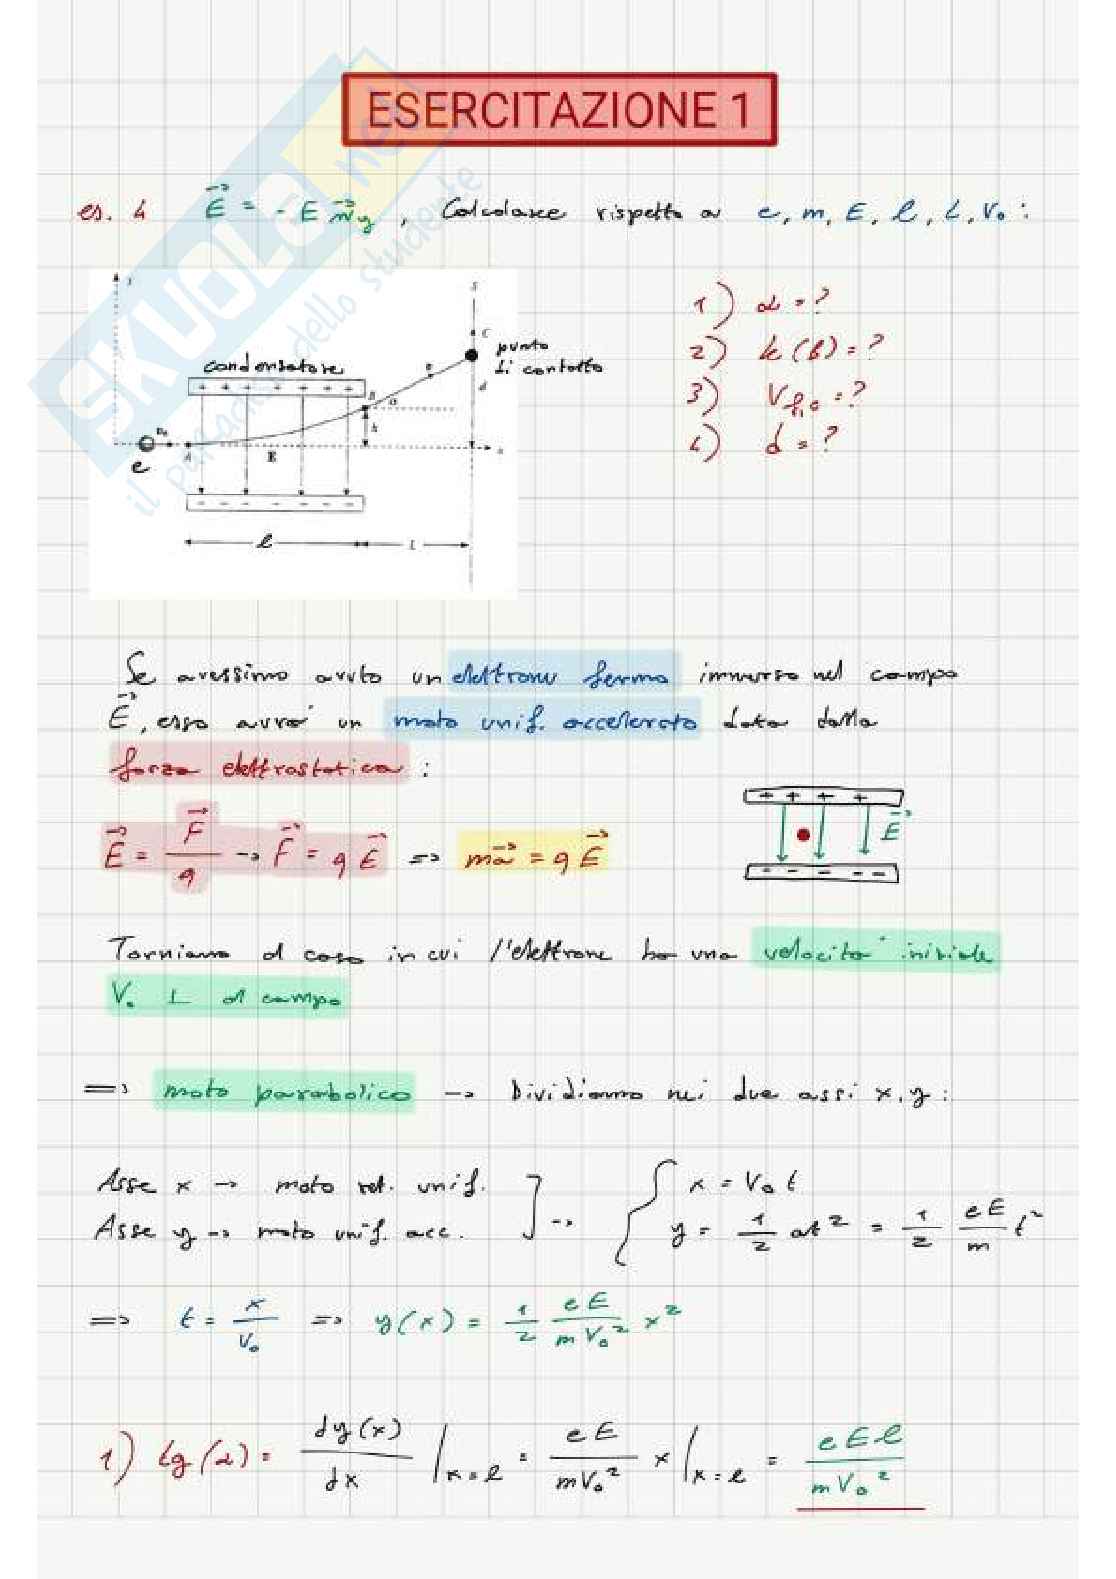 ESERCITAZIONE 1
SKUOLA.net
il paradiso dello studente
es. 4 E⃗ = - E u⃗y , Calcolare rispetto a e, m, E, l, L, V₀ :
1) α = ?
2) k (B) = ?
3) V f,c = ?
4) d = ?
y
S
C
punto
di contatto
condensatore
+ + + + + + +
B α
v
d
h
v₀
e
A
E
x
- - - - - - -
l
L
Se avessimo avuto un elettrone fermo immerso nel campo
E⃗, esso avrà un moto unif. accelerato dato dalla
forza elettrostatica :
E⃗ = F⃗ / q → F⃗ = q E⃗ => ma⃗ = q E⃗
+ + + +
E⃗
- - - - -
Torniamo al caso in cui l'elettrone ha una velocità iniziale
V₀ ⊥ al campo
=> moto parabolico → Dividiamo nei due assi x, y :
Asse x → moto ret. unif.
Asse y → moto unif. acc.
{ x = V₀ t
y = 1/2 at² = 1/2 eE/m t²
=> t = x/V₀ => y(x) = 1/2 eE/mV₀² x²
1) tg(α) = dy(x)/dx |x=l = eE/mV₀² x |x=l = eEl/mV₀²